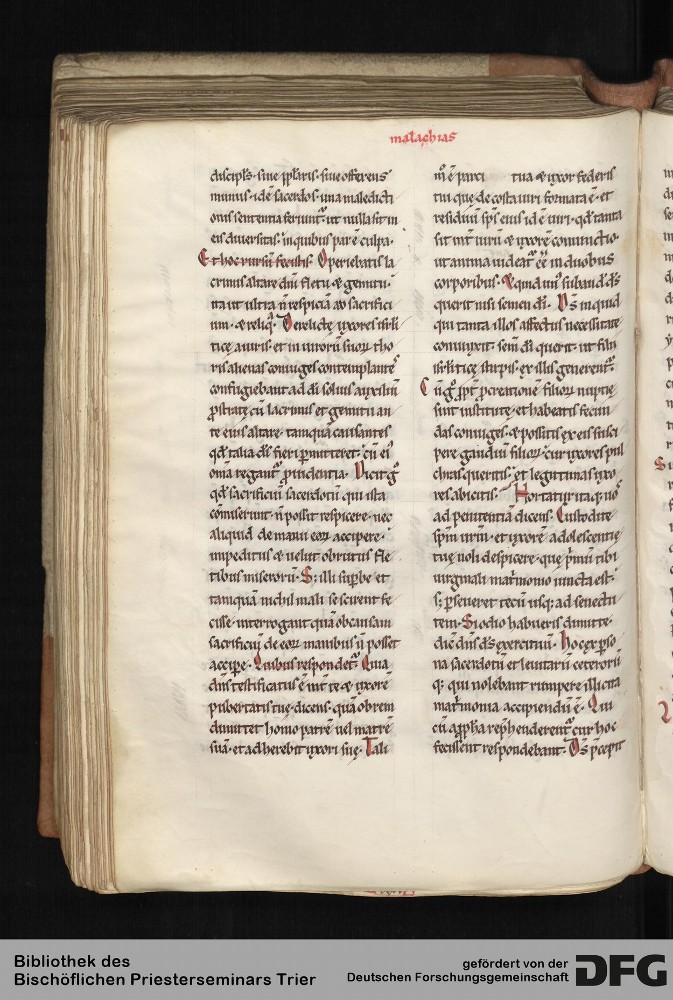 malachias
discipls. siue pplaris. siue offerens
munus. idē sacerdos. una maledicti
onis sententia feriunt᷑. ut nulla sit in
eis diuersitas. in quibus par ē culpa.
Et hoc rursū fecistis. Operiebatis la
crimis altare dn̄i fletu & gemitu.
ita ut ultra n̄ respiciā ad sacrifici
um. & reliq̄. Derelictę uxores isrł
ticę a uiris. et in uirorū suoꝝ tho
ris alienas coniuges contemplantes
confugiebant ad dī solius auxiliū
ꝓstratę cū lacrimis et gemitu an
te eius altare. tamquā causantes
qd̄ talia ds̄ fieri ꝑmitteret. cū ei᷒
om̄ia regant᷑ ꝓuidentia. Dicit g̊
qd̄ sacrificiū sacerdotū qui ista
cōmiserunt. n̄ possit respicere. nec
aliquid de manu eoꝝ accipere.
impeditus & uelut obrutus fle
tibus miserorū. S; illi supbe et
tamquā nichil mali se scirent fe
cisse. interrogant quā ob causam
sacrificiū de eoꝝ manibus n̄ posset
accipe. Quibus respondet᷑. Quia
dn̄s testificatus ē int̄ te & uxorē
pubertatis tuę. dicens. quā ob rem
dimittet homo patrē uel matrē
suā. et adherebit uxori suę. Tali
tua & uxor federis
tui quę de costa uiri formata ē. et
residuū sps̄ eius id ē uiri. qd̄ tanta
sit int̄ uirū & uxorē coniunctio.
ut anima uideat᷑ eē in duobus
corporibus. Et quid uni᷒ suban di ds̄
querit nisi semen dī. Ds̄ inquid
qui tanta illos affectus necessitate
coniunxit. sem̄ dī querit. ut filii
isrłiticę stirpis ex illis generent᷑.
Cū g̊ ꝓpt̄ pcreationē filioꝝ nuptię
sint institutę. et habeatis fecun
das coniuges. & possitis ex eis susci
pere gaudiū filioꝝ. cur uxores pul
chras queritis. et legitimas uxo
res abicitis. Hortatur itaq; uos
ad penitentiā dicens. Custodite
spm̄ urm̄. et uxorē adolescentię
tuę noli despicere. que pmū tibi
uirginali matrimonio iuncta est.
S; ꝑseueret tecū usq; ad senectu
tem. Si odio habueris dimitte.
dic̄ dn̄s ds̄ exercituū. Hoc ex ꝑso
na sacerdotū et leuitarū ceterorū
q; qui nolebant rumpere illicita
matrimonia accipiendū ē. Qui
cū a ppha rephenderent᷑ cur hoc
fecissent respondebant. Ds̄ pcepit
Bibliothek des
Bischöflichen Priesterseminars Trier
gefördert von der
Deutschen Forschungsgemeinschaft
DFG